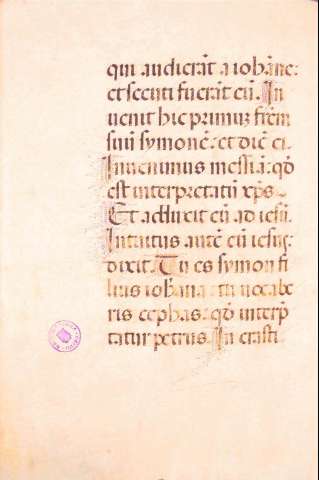 qui audierāt a iohāne:
et secuti fuerāt eū. In
uenit hic primuʒ frēm
suū symonē: et dic̄ ei.
Inuenimus messiā: qḋ
est interpretatū xp̄s.
Et adduxit eū ad iesū.
Intuitus autē eū iesus:
dixit. Tu es symon fi
lius iohāna: tu uocabe
ris cephas: qḋ interp̄
tatur petrus. In crasti